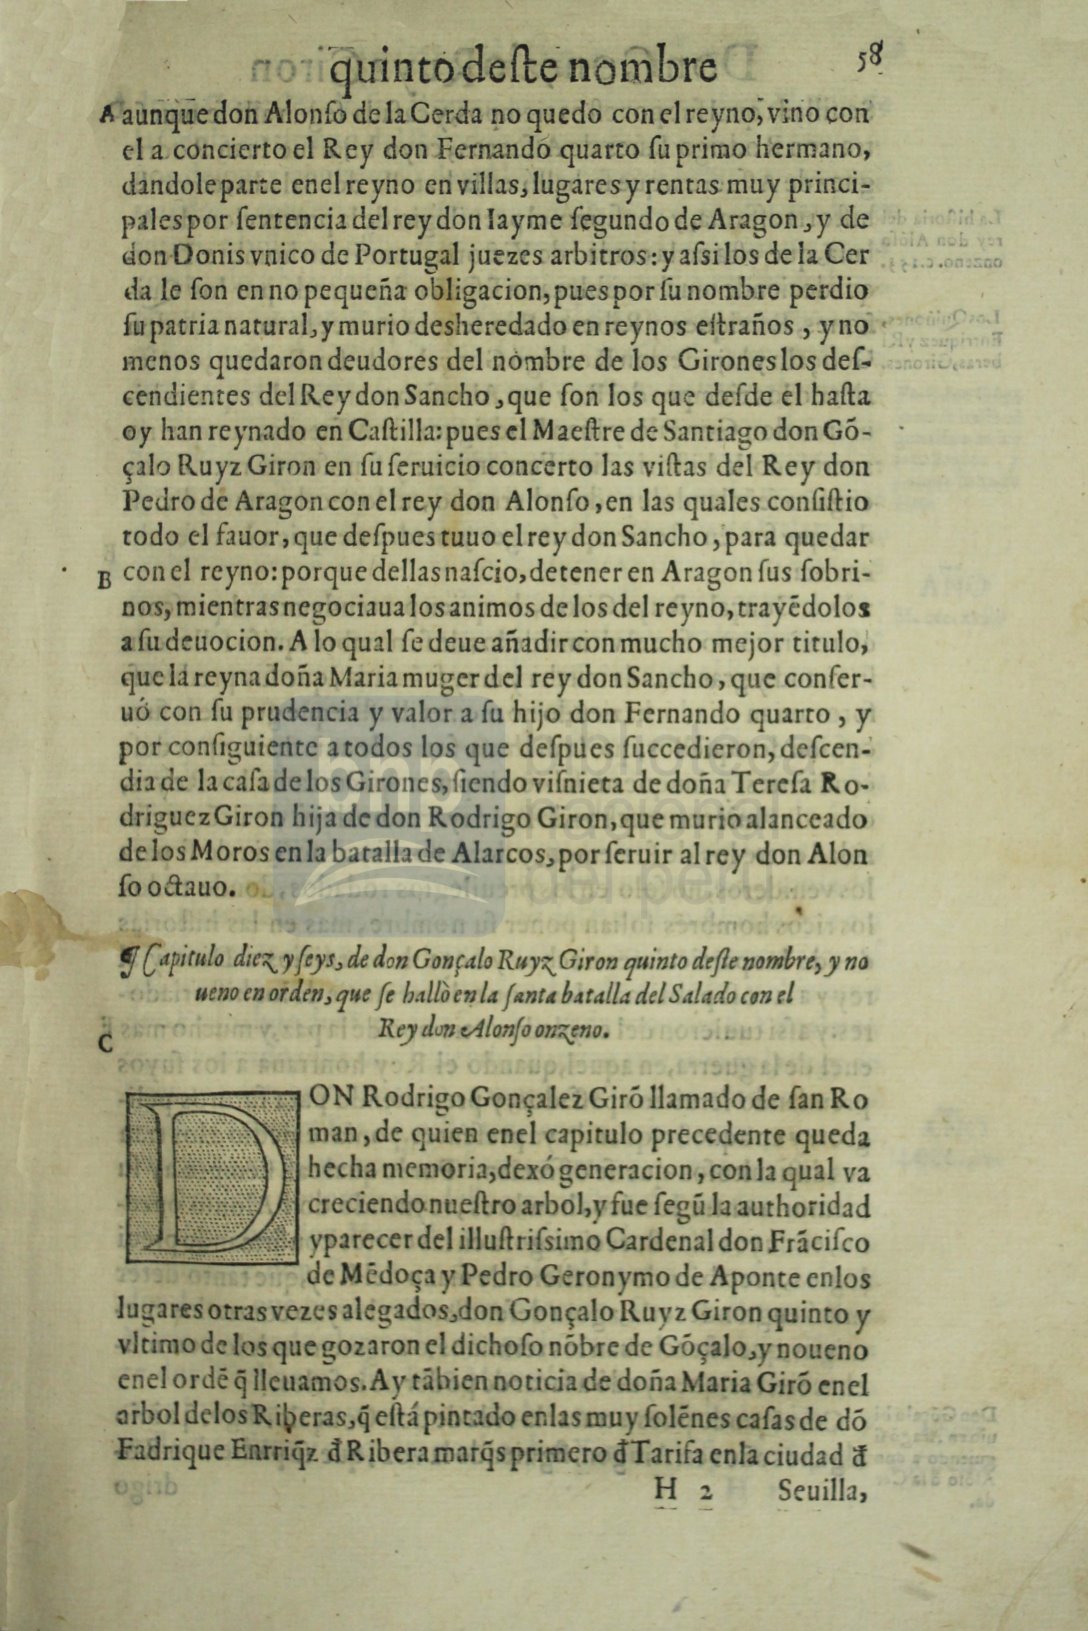 quinto deſte nombre
58
A aunque don Alonſo de la Cerda no quedo con el reyno, vino con
el a concierto el Rey don Fernando quarto ſu primo hermano,
dandole parte enel reyno en villas, lugares y rentas muy princi-
pales por ſentencia del rey don Iayme ſegundo de Aragon, y de
don Donis vnico de Portugal juezes arbitros: y aſsi los de la Cer
da le ſon en no pequeña obligacion, pues por ſu nombre perdio
ſu patria natural, y murio desheredado en reynos eſtraños, y no
menos quedaron deudores del nombre de los Girones los deſ-
cendientes del Rey don Sancho, que ſon los que deſde el haſta
oy han reynado en Caſtilla: pues el Maeſtre de Santiago don Gõ-
çalo Ruyz Giron en ſu ſeruicio concerto las viſtas del Rey don
Pedro de Aragon con el rey don Alonſo, en las quales conſiſtio
todo el fauor, que deſpues tuuo el rey don Sancho, para quedar
B con el reyno: porque dellas naſcio, detener en Aragon ſus ſobri-
nos, mientras negociaua los animos de los del reyno, trayẽdolos
a ſu deuocion. A lo qual ſe deue añadir con mucho mejor titulo,
que la reyna doña Maria muger del rey don Sancho, que conſer-
uó con ſu prudencia y valor a ſu hijo don Fernando quarto, y
por conſiguiente a todos los que deſpues ſuccedieron, deſcen-
dia de la caſa de los Girones, ſiendo viſnieta de doña Tereſa Ro-
driguez Giron hija de don Rodrigo Giron, que murio alanceado
de los Moros en la batalla de Alarcos, por ſeruir al rey don Alon
ſo octauo.
¶ Capitulo diez y ſeys, de don Gonçalo Ruyz Giron quinto deſte nombre, y no
ueno en orden, que ſe hallò en la ſanta batalla del Salado con el
Rey don Alonſo onzeno.
C
DON Rodrigo Gonçalez Girõ llamado de ſan Ro
man, de quien enel capitulo precedente queda
hecha memoria, dexó generacion, con la qual va
creciendo nueſtro arbol, y fue ſegũ la authoridad
y parecer del illuſtriſsimo Cardenal don Frãciſco
de Mẽdoça y Pedro Geronymo de Aponte enlos
lugares otras vezes alegados, don Gonçalo Ruyz Giron quinto y
vltimo de los que gozaron el dichoſo nõbre de Gõçalo, y noueno
enel ordẽ q̃ lleuamos. Ay tãbien noticia de doña Maria Girõ enel
arbol delos Riberas, q̃ eſtá pintado enlas muy ſolẽnes caſas de dõ
Fadrique Enrriq̃z đ Ribera marq̃s primero đ Tarifa enla ciudad đ
H 2 Seuilla,